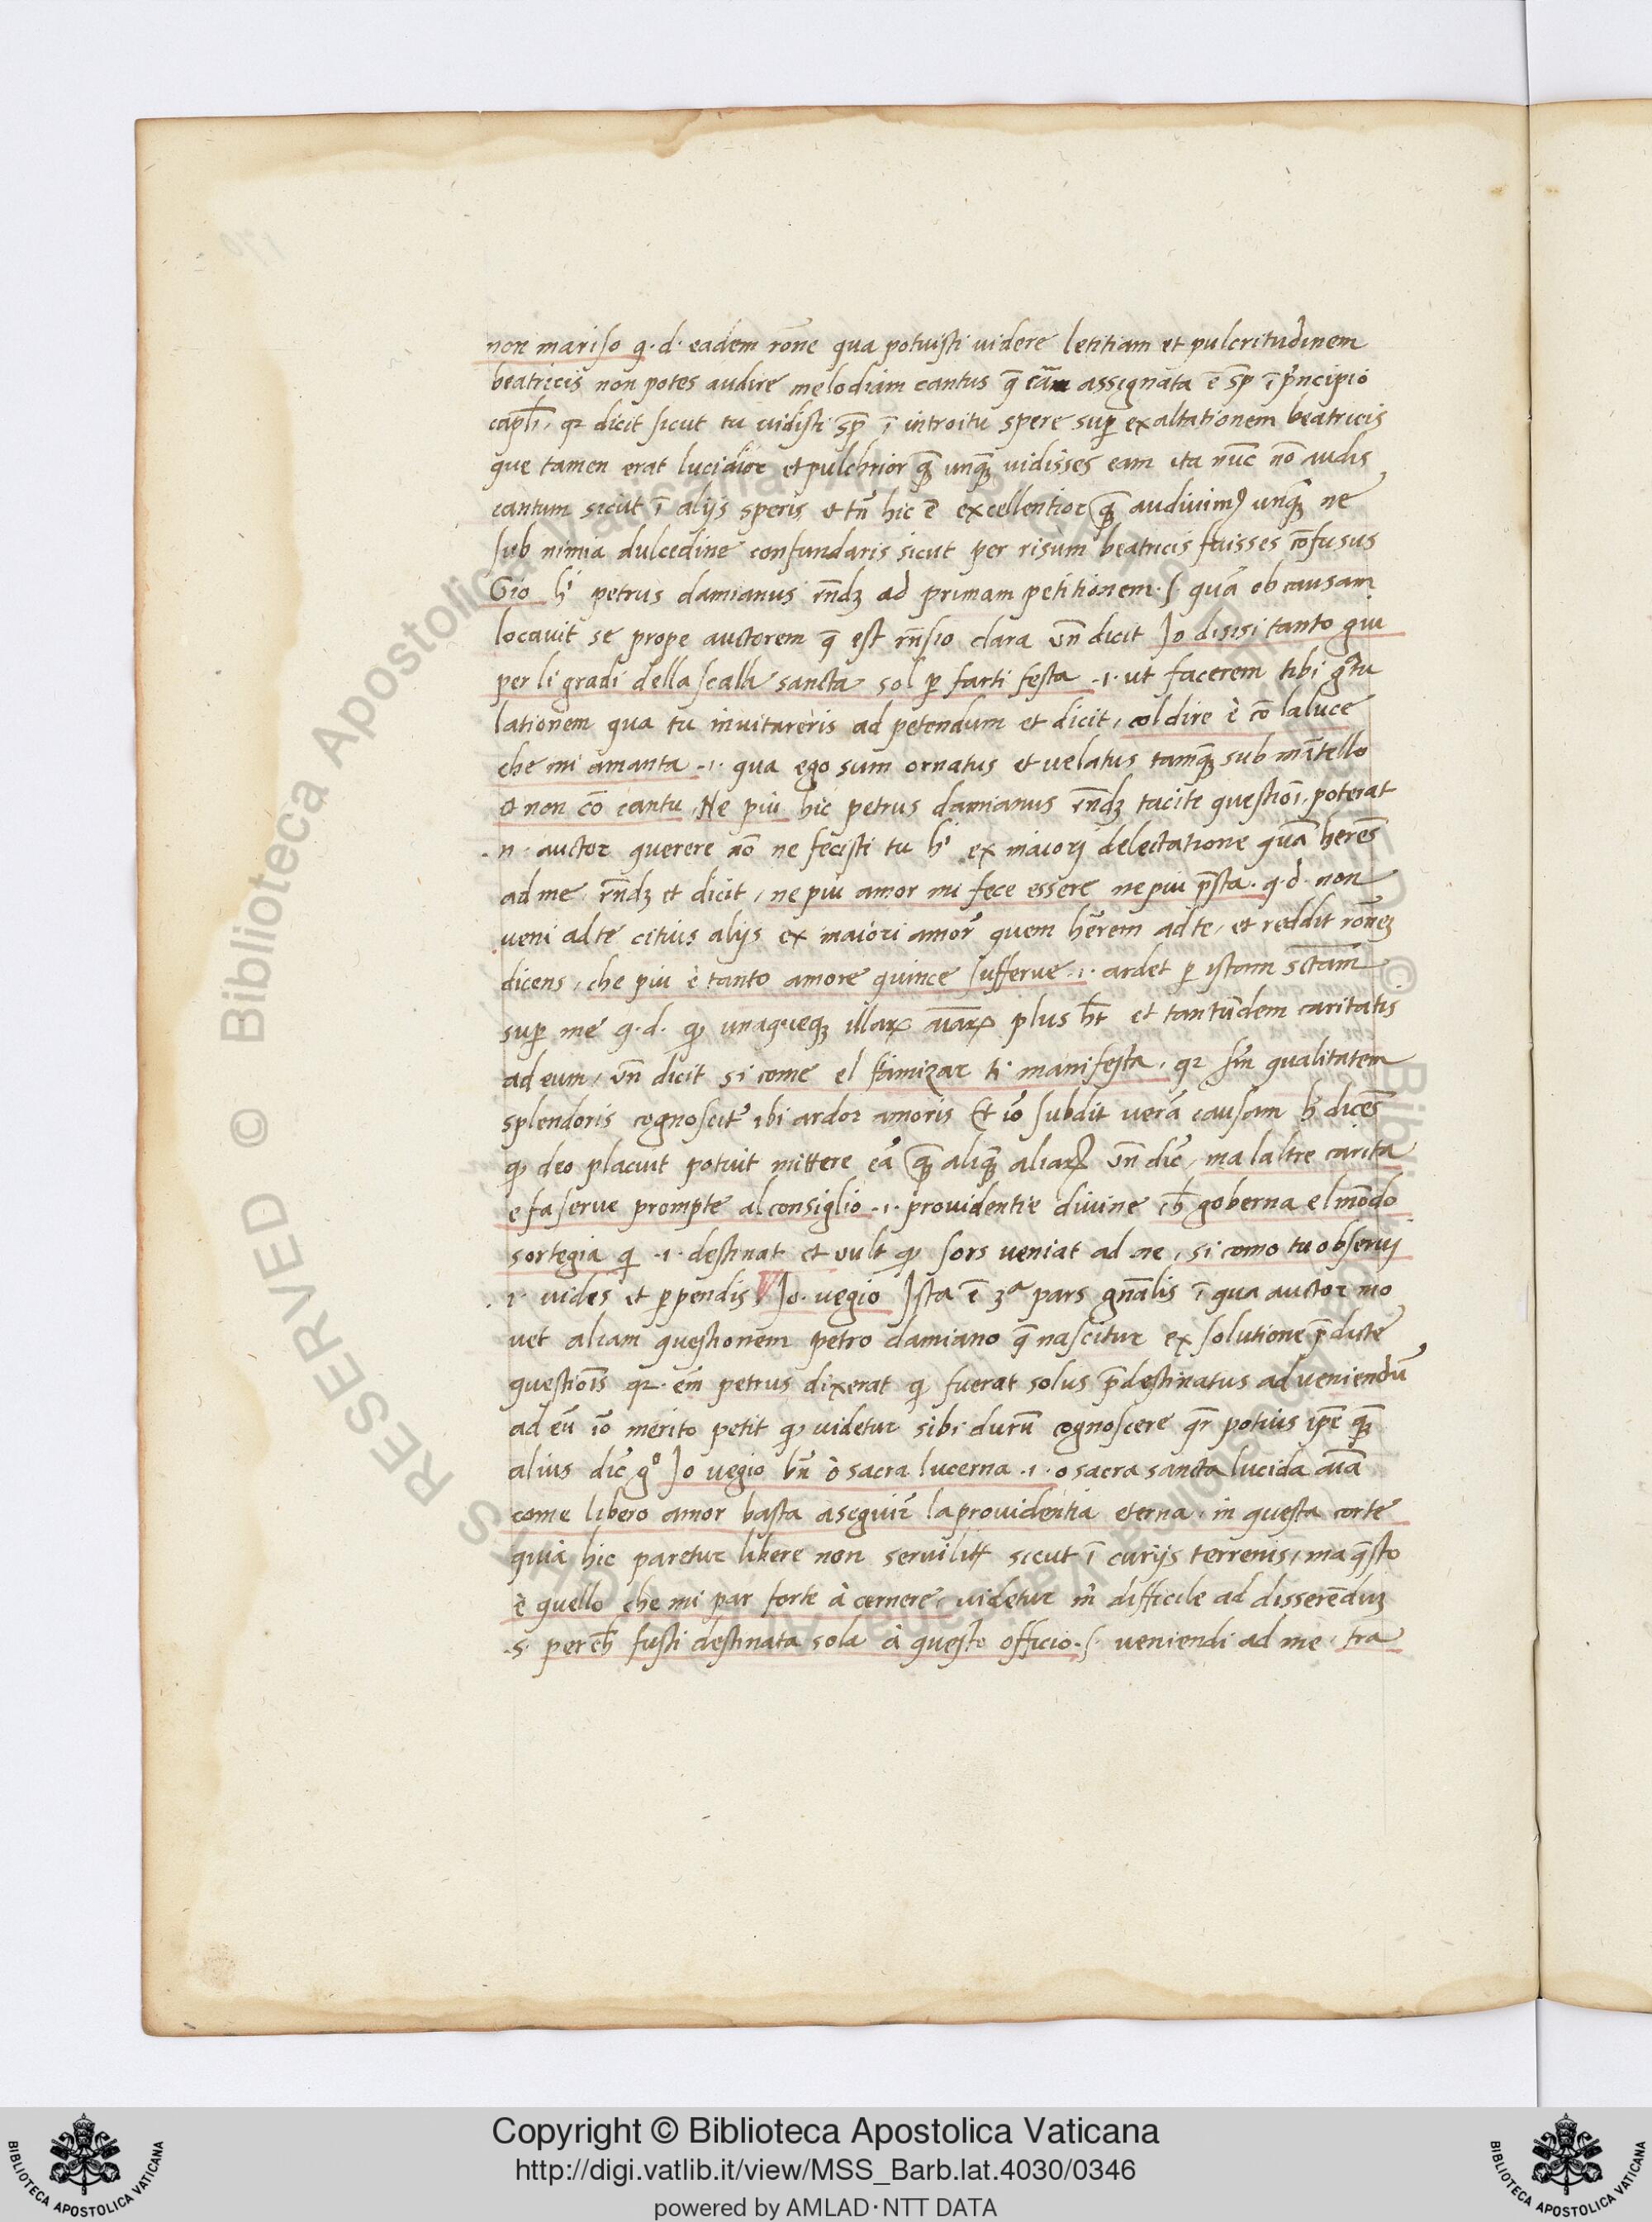 non mariso q. d. eadem rōne qua potuisti uidere letitiam et pulcritudinem
beatricis non potes audire melodiam cantus q̄ cām assignata ē sp̄ ī p̄ncipio
capłi, qz dicit sicut tu uidisti sp̄ ī introitu spere sup̱ exaltationem beatricis
que tamen erat lucidior et pulchrior q̄ȝ unq̄ȝ uidisses eam ita nūc nō audis
cantum sicut ī alijs speris et tn̄ hic ē excellentior q̄ȝ audiuimꝰ unq̄ȝ ne
sub nimia dulcedine confundaris sicut per risum beatricis fuisses cōfusus
Gio petrus damianus rn̄dȝ ad primam petitionem. s. quā ob causam
locauit se prope auctorem q̄ est rn̄sio clara un̄ dicit Jo disisi tanto giu
per li gradi della scalla sancta sol p̱ farti festa .i. ut facerem tibi gratu
lationem qua tu inuitareris ad petendum et dicit, col dire è cō la luce
che mi amanta .i. qua ego sum ornatus et uelatus tamq̄ȝ sub mātello
o non cō cantu Ne piu hic petrus damianus rn̄dȝ tacite questiōi, poterat
.n. auctor querere nō ne fecisti tu h' ex maiori delectatione quā herēs
ad me rn̄dȝ et dicit, ne piu amor mi fece essere ne piu p̄sta. q. d. non
ueni ad te citius alijs ex maiori amor̄ quem hērem ad te, et reddit rōneȝ
dicens, che piu è tanto amore quince sufferue .i. ardet p̱ istam sctam
sup̱ me q. d. qꝫ unaqueqȝ illaꝝ aīaꝝ plus h̄t et tantūdem caritatis
ad eum, un̄ dicit si come el fiamizar ti manifesta, qz sm̄ qualitatem
splendoris cognoscit' ibi ardor amoris Et iō subdit uerā causam h' dicēs
qꝫ deo placuit potuit mittere eā q̄ȝ aliq̄ȝ aliaꝝ un̄ dic̄, ma laltre carita
e fa serue prompte al consiglio .i. prouidentie diuine, ch̄ goberna el mōdo
sortegia qi .i. destinat et uult qꝫ sors ueniat ad me, si como tu obserui
.i. uides et p̱pendis Jo. uegio Jsta ē 3ª pars gn̄alis ī qua auctor mo
uet aliam questionem petro damiano q̄ nascitur ex solutione p̄dicte
questiōis qz. em̄ petrus dixerat qꝫ fuerat solus p̄destinatus ad ueniendū
ad eū iō merito petit qꝫ uidetur sibi durū cognoscere qr̄ potius ip̄e q̄ȝ
alius dic̄ gº Jo uegio bn̄ ò sacra lucerna .i. o sacra sancta lucida aīa
come libero amor basta aseguir̄ la prouidentia eterna. in questa corte
quia hic paretur libere non seruilit̄ sicut ī curijs terrenis, ma q̄sto
è quello che mi par forte à cernere, uidetur m̄ difficile ad disserēduȝ
.s. per ch̄ fusti destinata sola à questo officio. s. ueniendi ad me. tra
Copyright © Biblioteca Apostolica Vaticana
http://digi.vatlib.it/view/MSS_Barb.lat.4030/0346
powered by AMLAD·NTT DATA